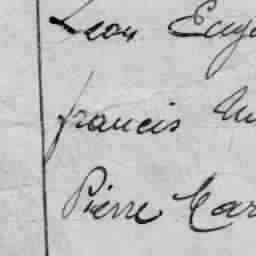 Leon Eug
francis
Pierre Car